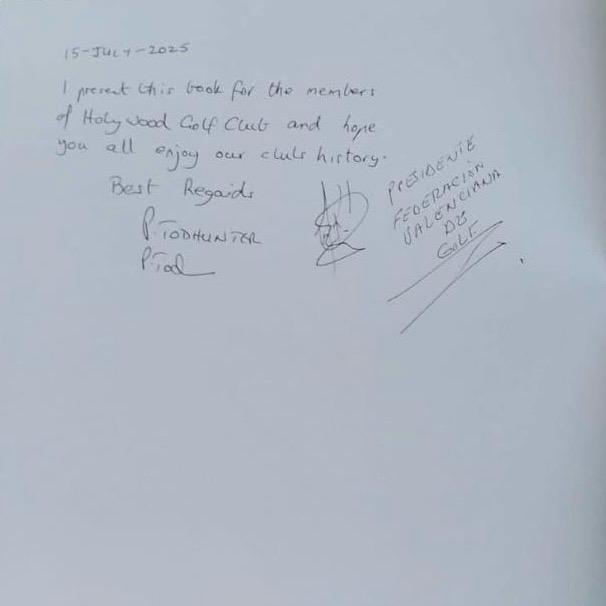 15-JULY-2025
I present this book for the members
of Holywood Golf Club and hope
you all enjoy our clubs history.
Best Regards
P.TODHUNTER
P.Tod
PRESIDENTE
FEDERACION
VALENCIANA
DE
GOLF